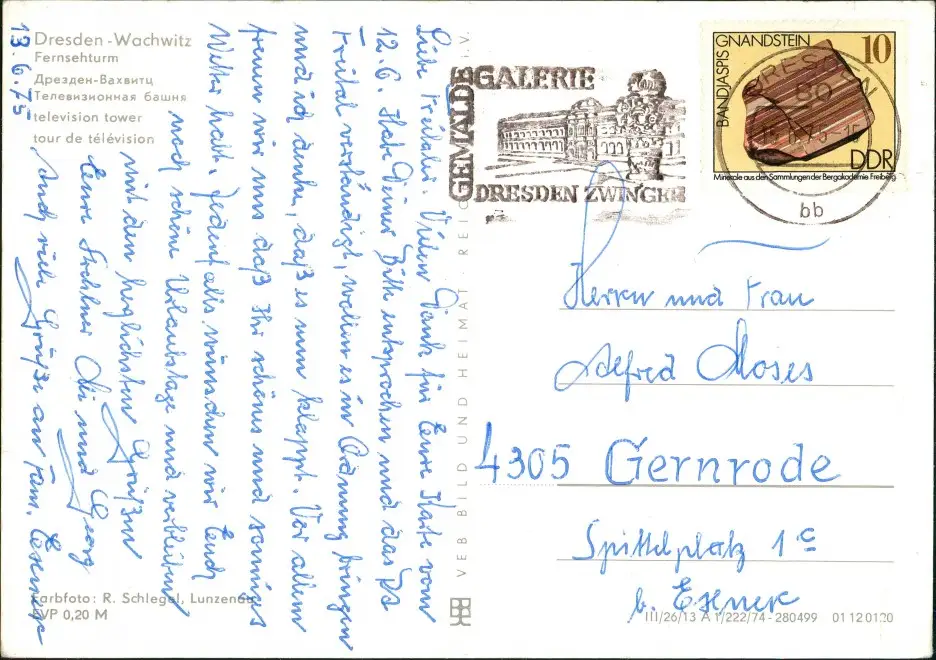 Dresden-Wachwitz
Fernsehturm
Дрезден-Вахвитц
Телевизионная башня
television tower
tour de télévision
13.6.75
Liebe Freitalis. Vielen Dank für Eure Karte vom
12.6. Habe Deiner Bitte entsprochen und das
Freital verständigt, wollen es in Ordnung bringen
und ich denke, daß es nun klappt. Vor allem
freuen wir uns daß Ihr schönes und sonniges
Wetter habt. Jedenfalls wünschen wir Euch
noch schöne Urlaubstage und verbleiben
mit den herzlichsten Grüßen
Eure und Georg
Auch viele Grüße an Fam. Exner
Farbfoto: R. Schlegel, Lunzenau
EVP 0,20 M
VEB BILD UND HEIMAT REIC I.V.
GEMÄLDE GALERIE
DRESDEN ZWINGER
BANDJASPIS GNANDSTEIN
10
DDR
Minerale aus den Sammlungen der Bergakademie Freiberg
DRESDEN
bb
Herrn und Frau
Alfred Moses
4305 Gernrode
Spittelplatz 1c
b. Exner
III/26/13 A 1/222/74-280499 01 12 0120